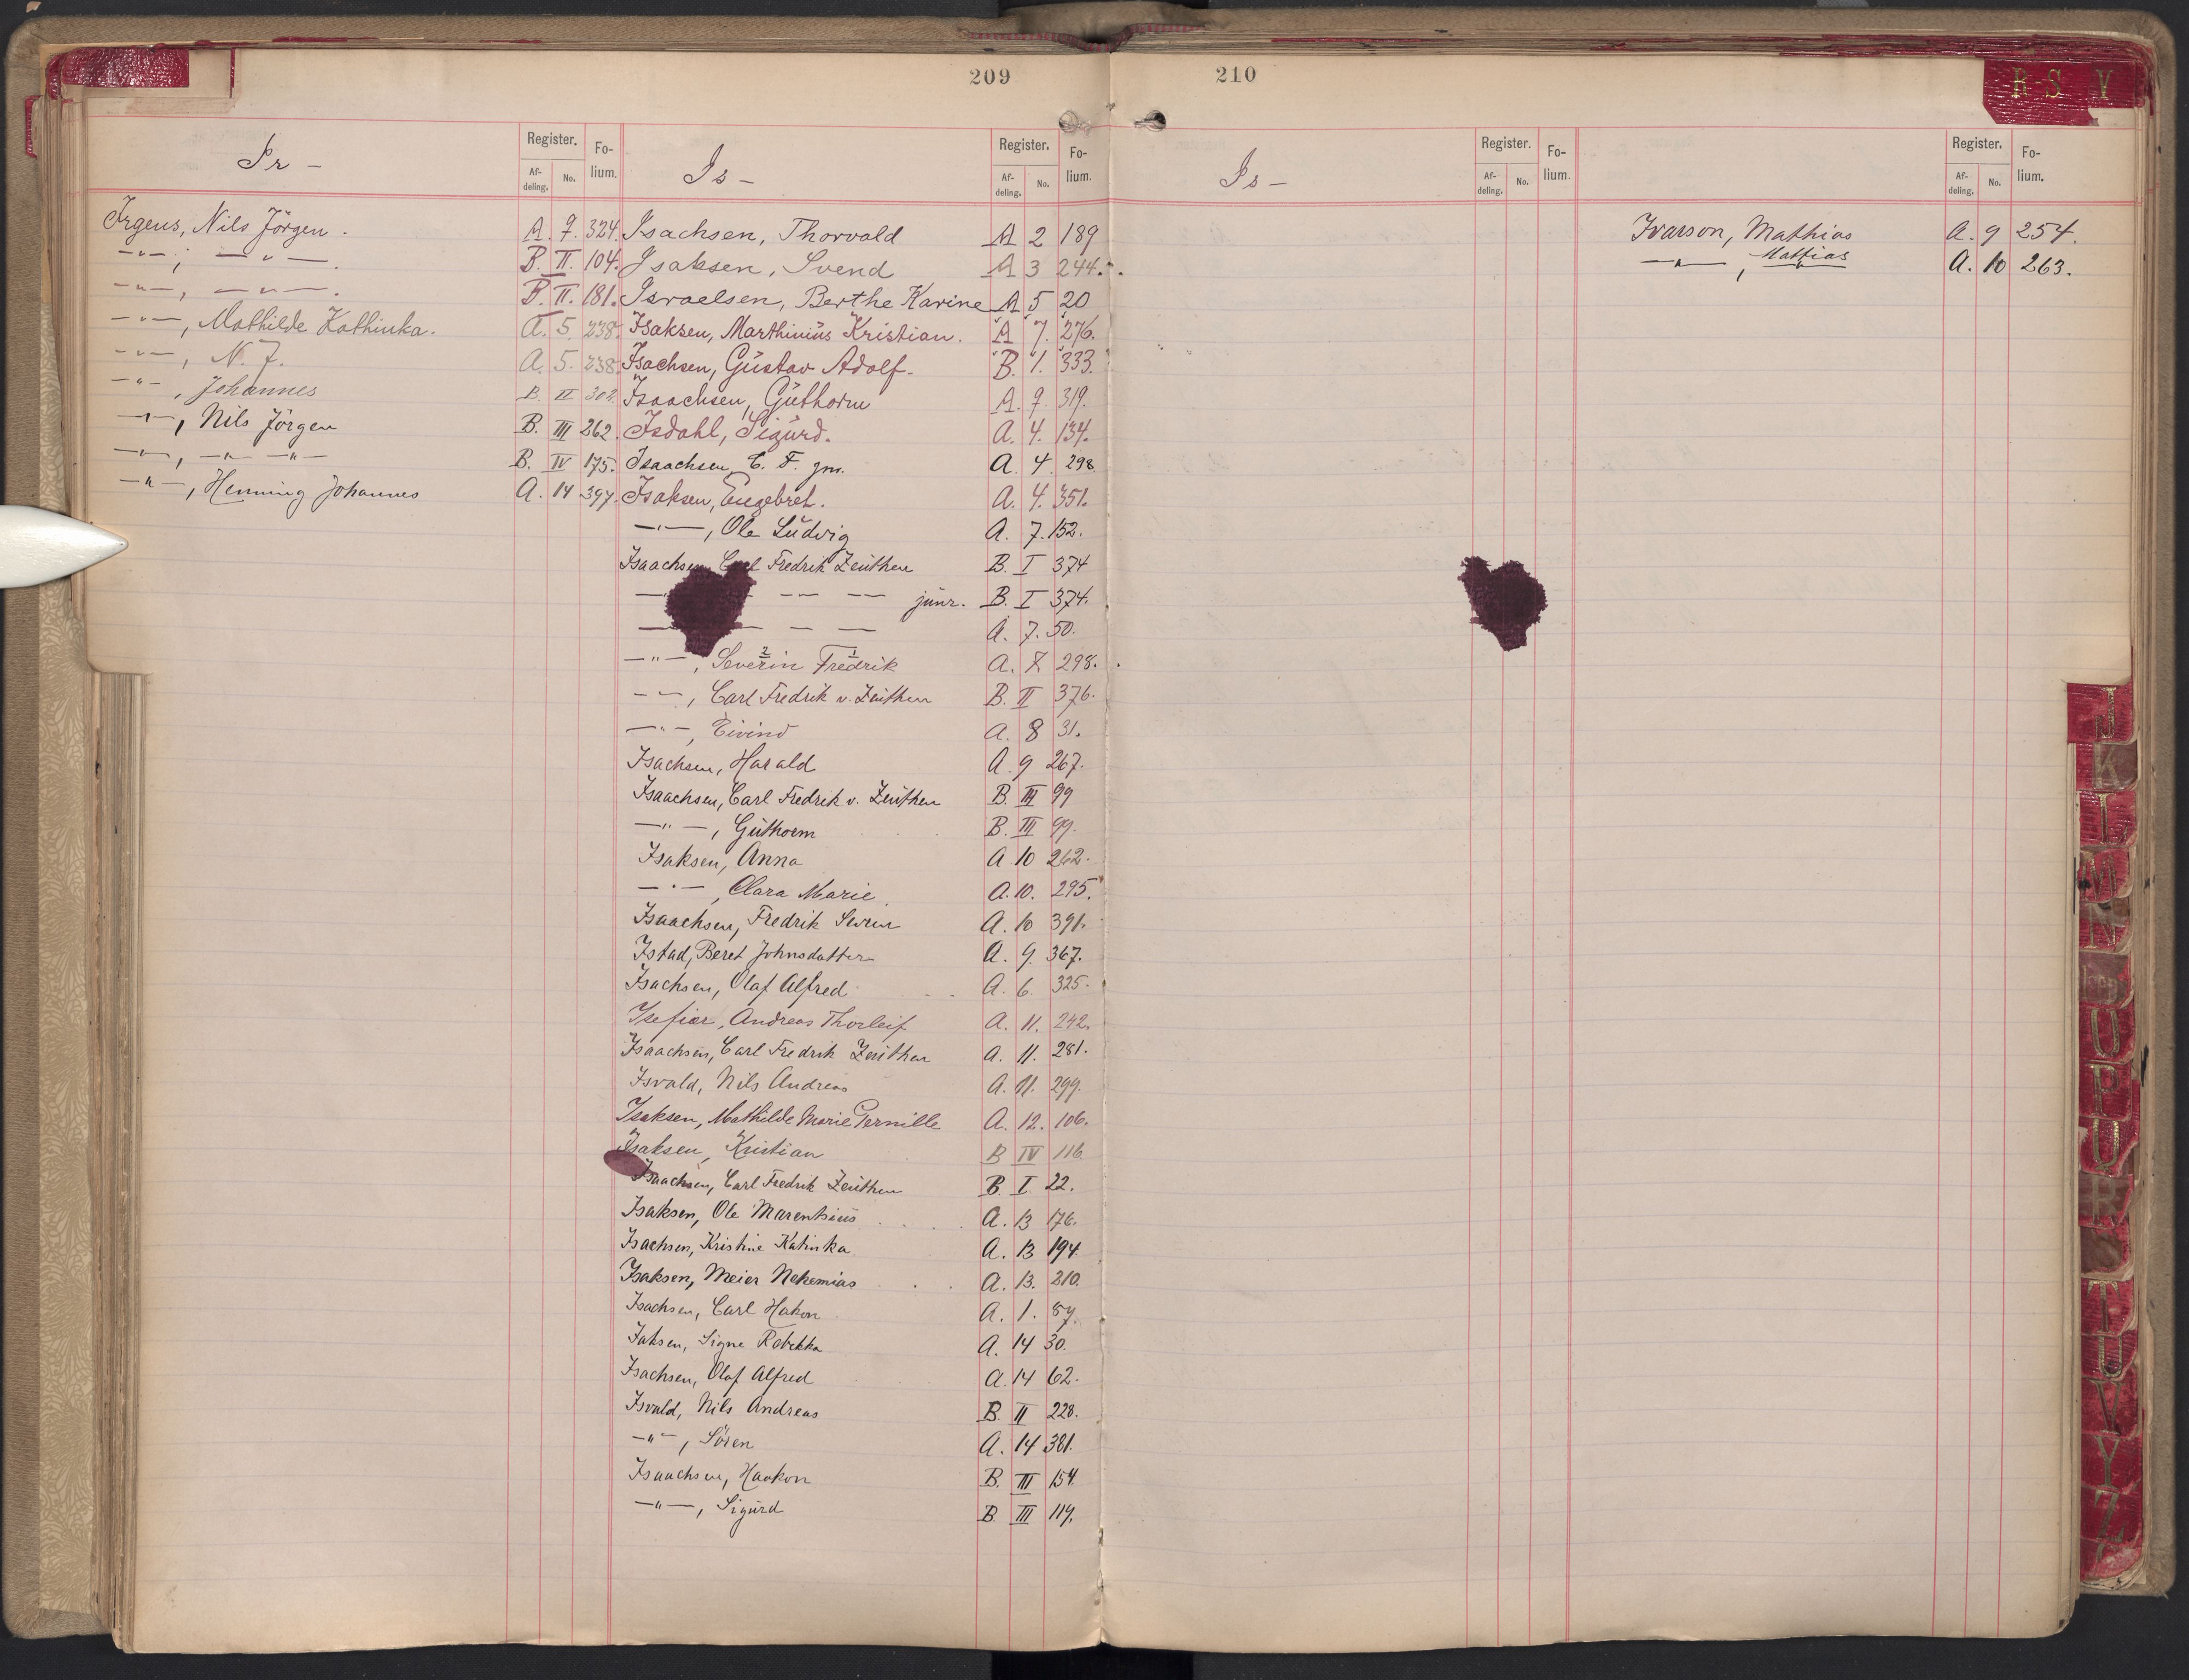 209
Ir –
Register.
Af-deling.
No.
Fo-lium.
Irgens, Nils Jörgen. A. 7. 324.
–"–, –"–. B. II. 104.
–"–, –"–. B. II. 181.
–"–, Mathilde Kathinka. A. 5. 238.
–"–, N. J. A. 5. 238.
–"–, Johannes B. II 302.
–"–, Nils Jörgen B. III 262.
–"–, –"– –"– B. IV 175.
–"–, Henning Johannes A. 14 397.
Is –
Register.
Af-deling.
No.
Fo-lium.
Isachsen, Thorvald A 2 189
Isaksen, Svend A 3 244.
Israelsen, Berthe Karine A 5 20
Isaksen, Marthinius Kristian. A 7. 276.
Isachsen, Gustav Adolf. B. 1. 333.
Isaachsen, Guthorm A. 7. 319.
Isdahl, Sigurd. A. 4. 134.
Isaachsen, C. F. jnr. A. 4 298
Isaksen, Engebret. A. 4. 351.
–"–, Ole Ludvig A. 7. 152.
Isaachsen, Carl Fredrik Zeuthen B. I 374
– – – junr. B. I 374.
– – – A. 7. 50.
–"–, Severin Fredrik A. 298.
–"–, Carl Fredrik v. Zeuthen B. II 376.
–"–, Eivind A. 8 31.
Isachsen, Harald A. 9 267.
Isaachsen, Carl Fredrik v. Zeuthen B. III 99
–"–, Guthorm B. III 99.
Isaksen, Anna A. 10 262.
–"–, Clara Marie A. 10. 295.
Isaachsen, Fredrik Severin A. 10 391.
Istad, Beret Johnsdatter A. 9. 367.
Isachsen, Olaf Alfred A. 6. 325.
Isefiær, Andreas Thorleif A. 11. 242.
Isaachsen, Carl Fredrik Zeuthen A. 11. 281.
Isvald, Nils Andreas A. 11. 299.
Isaksen, Mathilde Marie Pernille A. 12. 106.
Isaksen, Kristian B IV 116
Isaachsen, Carl Fredrik Zeuthen B. I 22.
Isaksen, Ole Marentsius A. 13 176.
Isachsen, Kristine Katinka A. 13 194.
Isaksen, Meier Nehemias A. 13. 210.
Isachsen, Carl Hakon A. 1. 87.
Isaksen, Signe Rebekka A. 14 30.
Isachsen, Olaf Alfred A. 14 62.
Isvald, Nils Andreas B. II 228.
–"–, Sören A. 14 381.
Isaachsen, Haakon B. III 154
–"–, Sigurd B. III 119.
210
R-S V
Is –
Register.
Af-deling.
No.
Fo-lium.
Register.
Af-deling.
No.
Fo-lium.
Ivarson, Mathias A. 9 254.
–"–, Mathias A. 10 263.
J
K
L
M
N
U
P
U
R
T
U
V
Y
Z